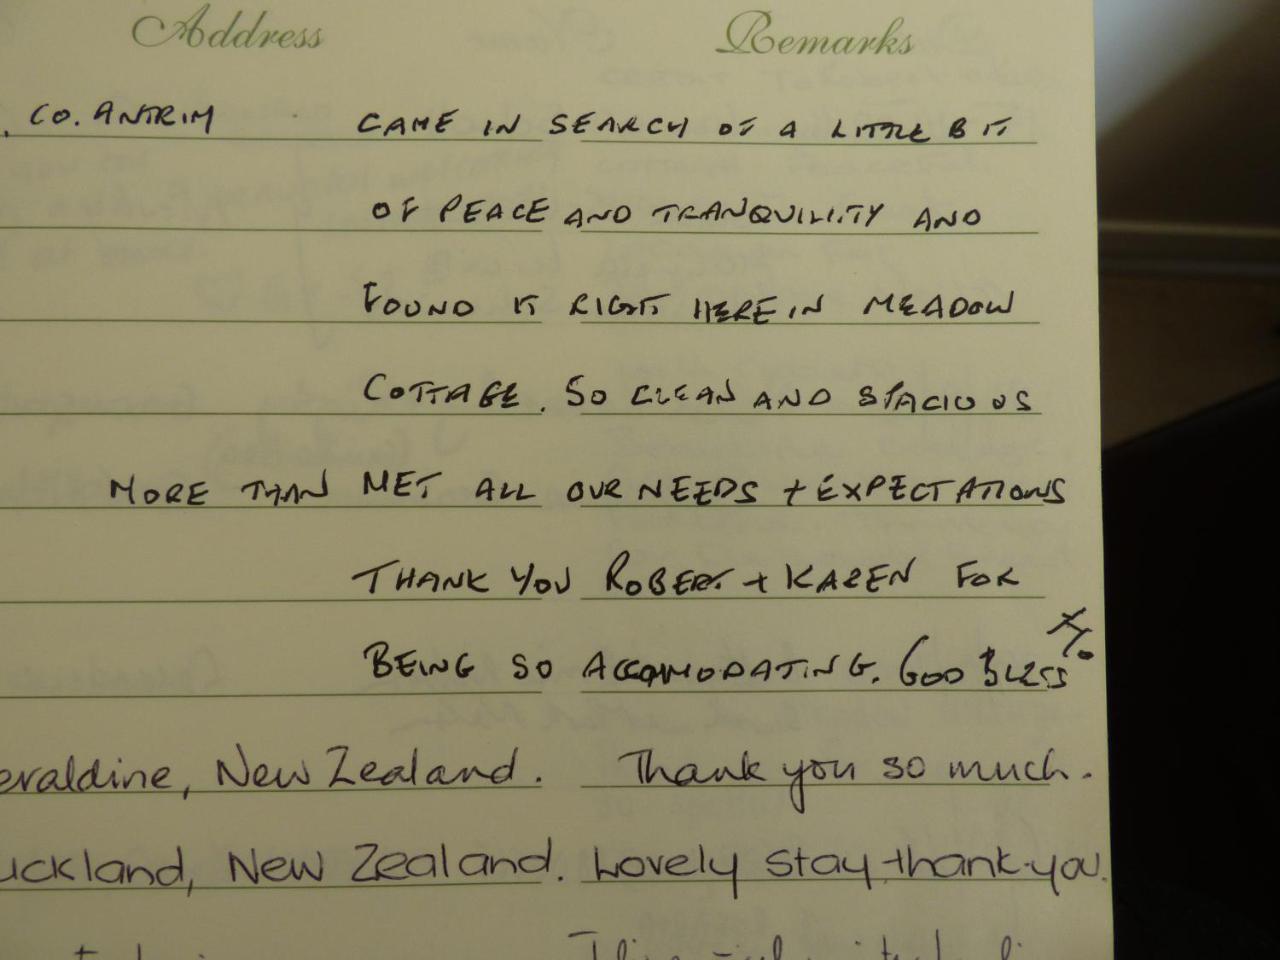 Address Remarks
, CO. ANTRIM CAME IN SEARCH OF A LITTLE BIT
OF PEACE AND TRANQUILITY AND
FOUND IT RIGHT HERE IN MEADOW
COTTAGE. SO CLEAN AND SPACIOUS
MORE THAN MET ALL OUR NEEDS + EXPECTATIONS
THANK YOU ROBERT + KAREN FOR
BEING SO ACCOMODATING. GOD BLESS
eraldine, New Zealand. Thank you so much.
uckland, New Zealand. Lovely stay thank-you.